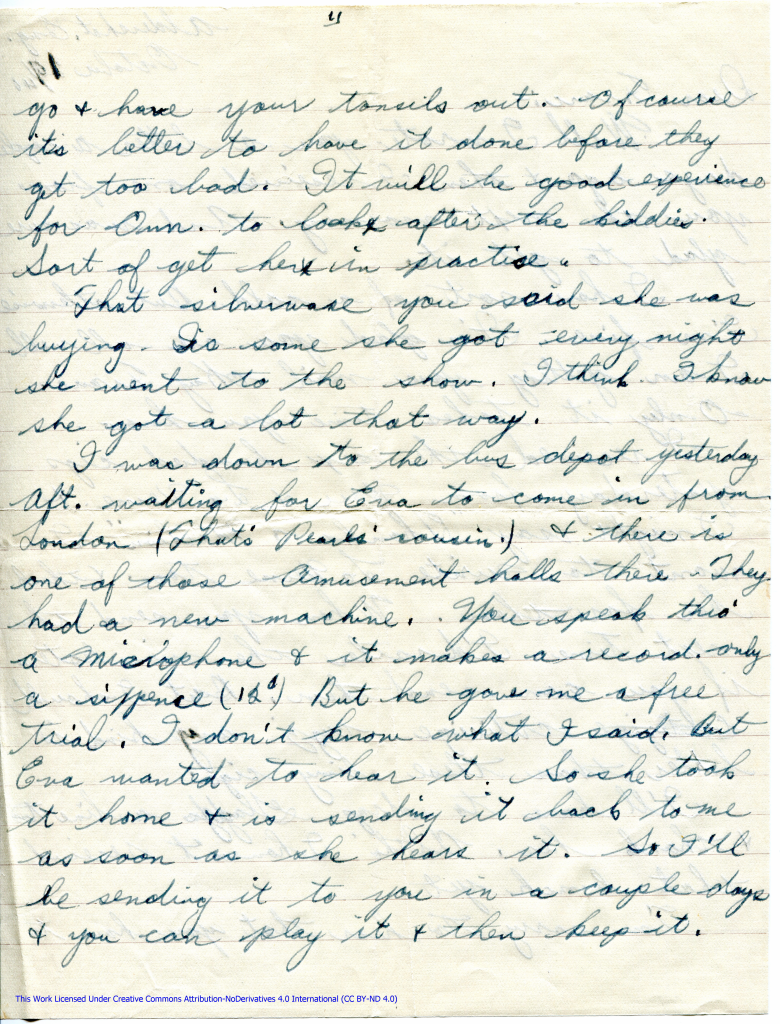 11
go & have your tonsils out. Of course
it's better to have it done before they
get too bad. It will be good experience
for Own. to look after the kiddies.
Sort of get her in practise.
That silverware you said she was
buying. Is some she got every night
she went to the show. I think. I know
she got a lot that way.
I was down to the bus depot yesterday
Aft. waiting for Eva to come in from
London (That's Pearls' cousin.) & there is
one of those Amusement halls there. They
had a new machine. You speak thro'
a Microphone & it makes a record. only
a sixpence (12¢) But he gave me a free
trial. I don't know what I said. But
Eva wanted to hear it. So she took
it home & is sending it back to me
as soon as she hears it. So I'll
be sending it to you in a couple days
& you can play it & then keep it.
This Work Licensed Under Creative Commons Attribution-NoDerivatives 4.0 International (CC BY-ND 4.0)